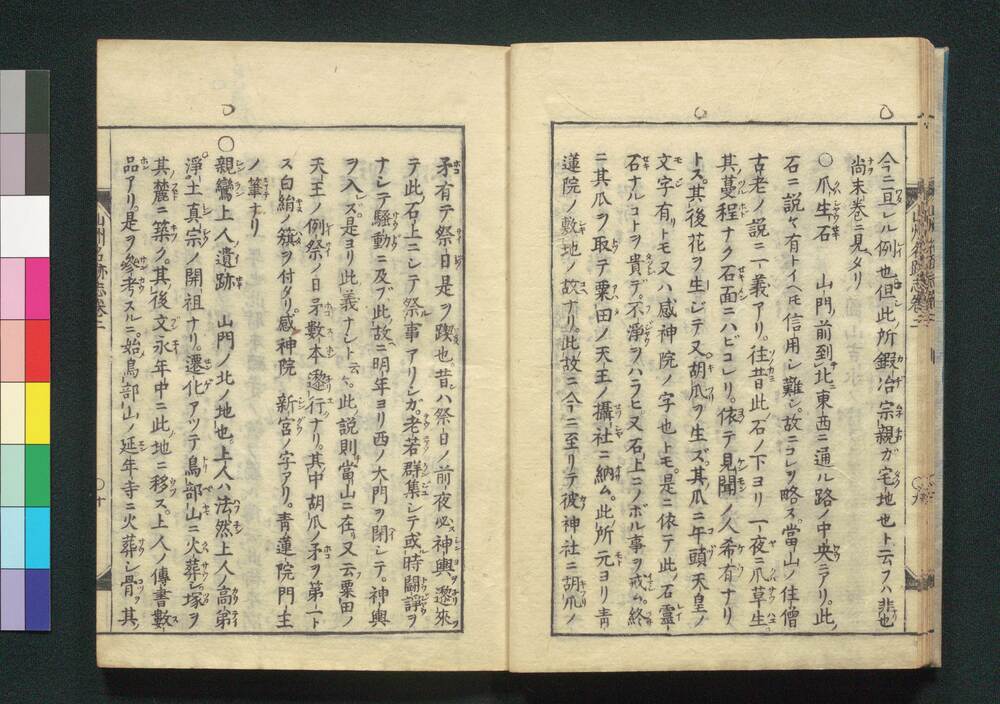 今ニ亘ル例也但此所鍛冶宗親ガ宅地也ト云フハ悲也
尚末巻ニ見タリ
○爪生石　山門ノ前到北ニ東西ニ通ル路ノ中央ニアリ此ノ
石ニ説々有トイヘ𪜈信用シ難シ故ニコレヲ略ス當山ノ住僧
古老ノ説ニ一義アリ往昔此ノ石ノ下ヨリ一夜ニ爪草生
其ノ蔓程ナク石面ニハビコレリ依テ見聞ノ人希有ナリ
トス其後花ヲ生ジテ又胡瓜ヲ生ズ其瓜ニ牛頭天皇ノ
文字有リトモ又ハ感神院ノ字也トモ是ニ依テ此ノ石靈
石ナルコトヲ貴デ不淨ヲハラヒ又石上ニノボル事ヲ戒ム終
ニ其瓜ヲ取テ粟田ノ天王ノ攝社ニ納ム此所元ヨリ青
蓮院ノ敷地ノ故ナリ此故ニ今ニ至リテ彼神社ニ胡瓜ノ
矛有テ祭日是ヲ䤹也昔シハ祭日ノ前夜必ス神輿遷來
テ此ノ石上ニシテ祭事アリシガ老若群集シテ或時鬪諍ヲ
ナシテ騷動ニ及ブ此故ニ明年ヨリ西ノ大門ヲ閉シテ神輿
ヲ入レズ是ヨリ此義ナシト云々此ノ説則當山ニ在リ又云粟田ノ
天王ノ例祭ノ日矛數本遷行ナリ其中胡瓜ノ矛ヲ第一ト
ス白絹ノ籏ヲ付タリ感神院　新宮ノ字アリ青蓮院門主
ノ筆ナリ
○親鸞上人ノ遺跡　山門ノ北ノ地也上人ハ法然上人ノ高弟
淨土真宗ノ開祖ナリ遷化アツテ鳥部山ニ火葬シ塚ヲ
其ノ麓ニ築ク其ノ後文永年中ニ此ノ地ニ移ス上人ノ傳書數
品アリ是ヲ參考スルニ始鳥部山ノ延年寺ニ火葬シ骨ヲ其ノ
山州名跡志巻二
○十